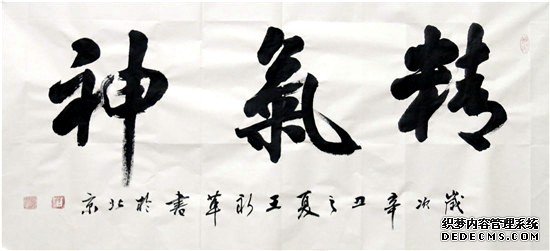 精氣神
歲次辛丑之夏王新革書於北京
织梦内容管理系统
DEDECMS.COM